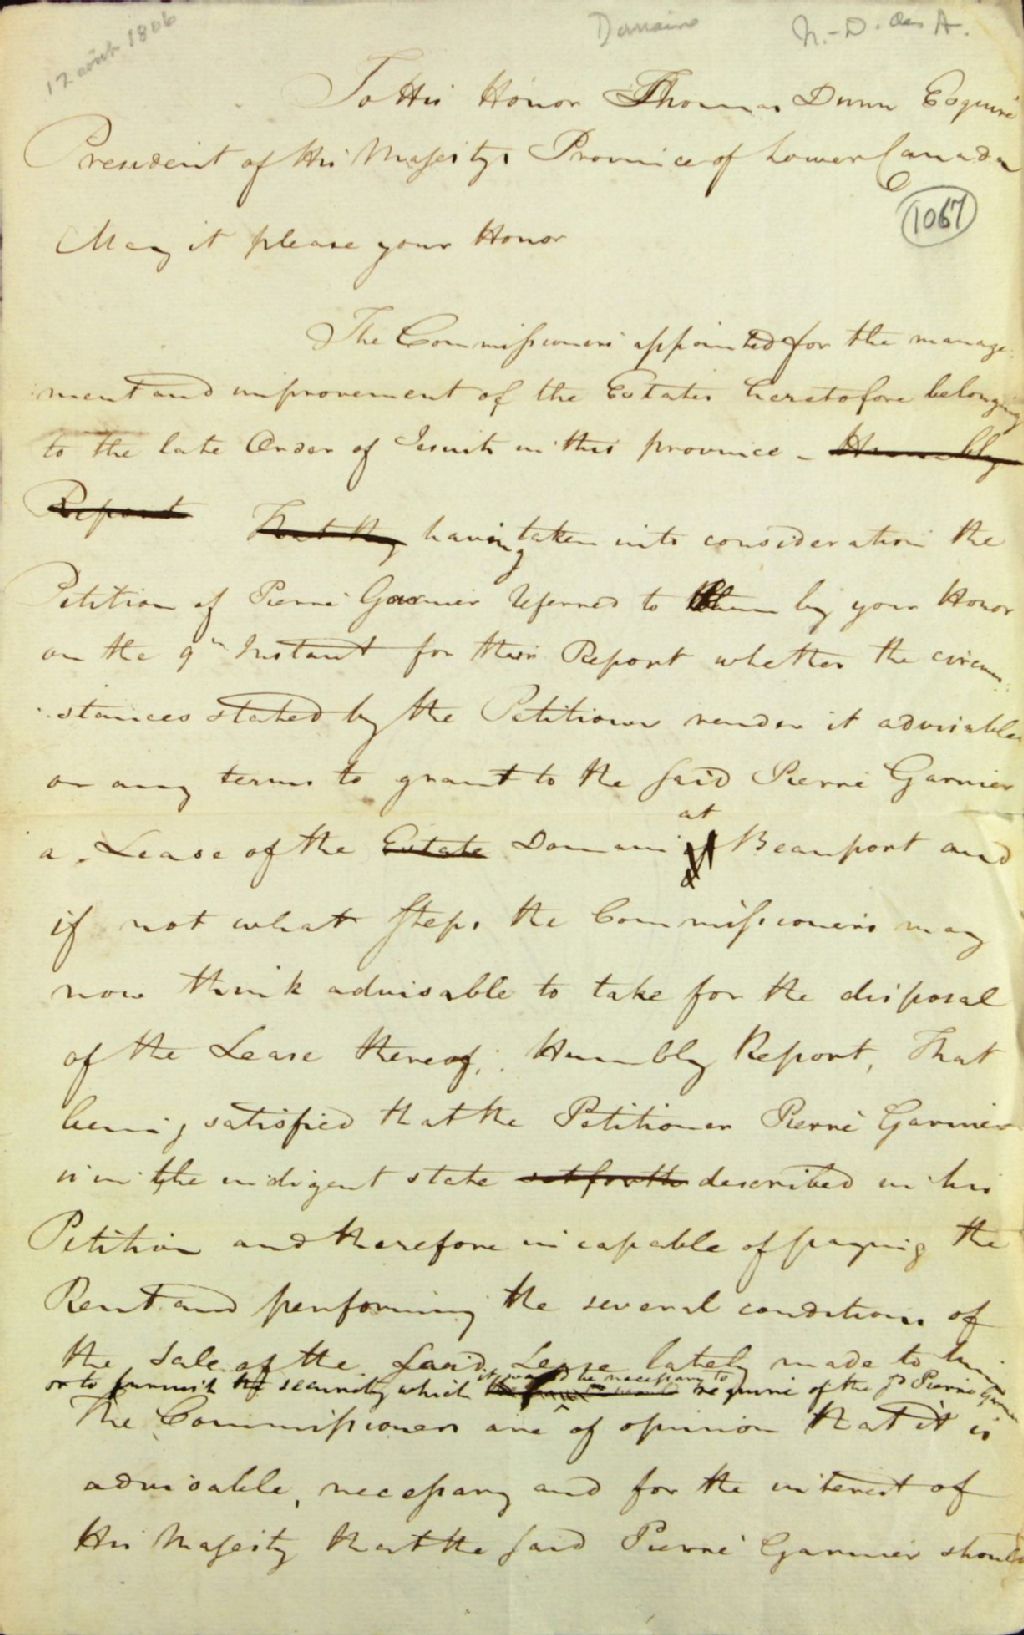 17 août 1806
Domaine
N.-D. des A.
To His Honor Thomas Dunn Esquire
President of His Majestys Province of Lower Canada
1067
May it please your Honor
The Commissioners appointed for the manage-
ment and improvement of the Estates heretofore belonging
to the late Order of Jesuits in this province - Humbly
Report That they having taken into consideration the
Petition of Pierre Garnier referred to them by your Honor
on the 9th Instant for their Report whether the circum-
stances stated by the Petitioner render it advisable
on any terms to grant to the said Pierre Garnier
at
a Lease of the Estate Domain of Beauport and
if not what steps the Commissioners may
now think advisable to take for the disposal
of the Lease thereof, Humbly Report, That
being satisfied that the Petitioner Pierre Garnier
is in the indigent state set forth described in his
Petition and therefore incapable of paying the
Rent and performing the several conditions of
the Sale of the said Lease lately made to him
it would be necessary to
or to furnish the security which require of the sd Pierre Garnier
The Commissioners are of opinion that it is
advisable, necessary and for the interest of
His Majesty that the said Pierre Garnier should